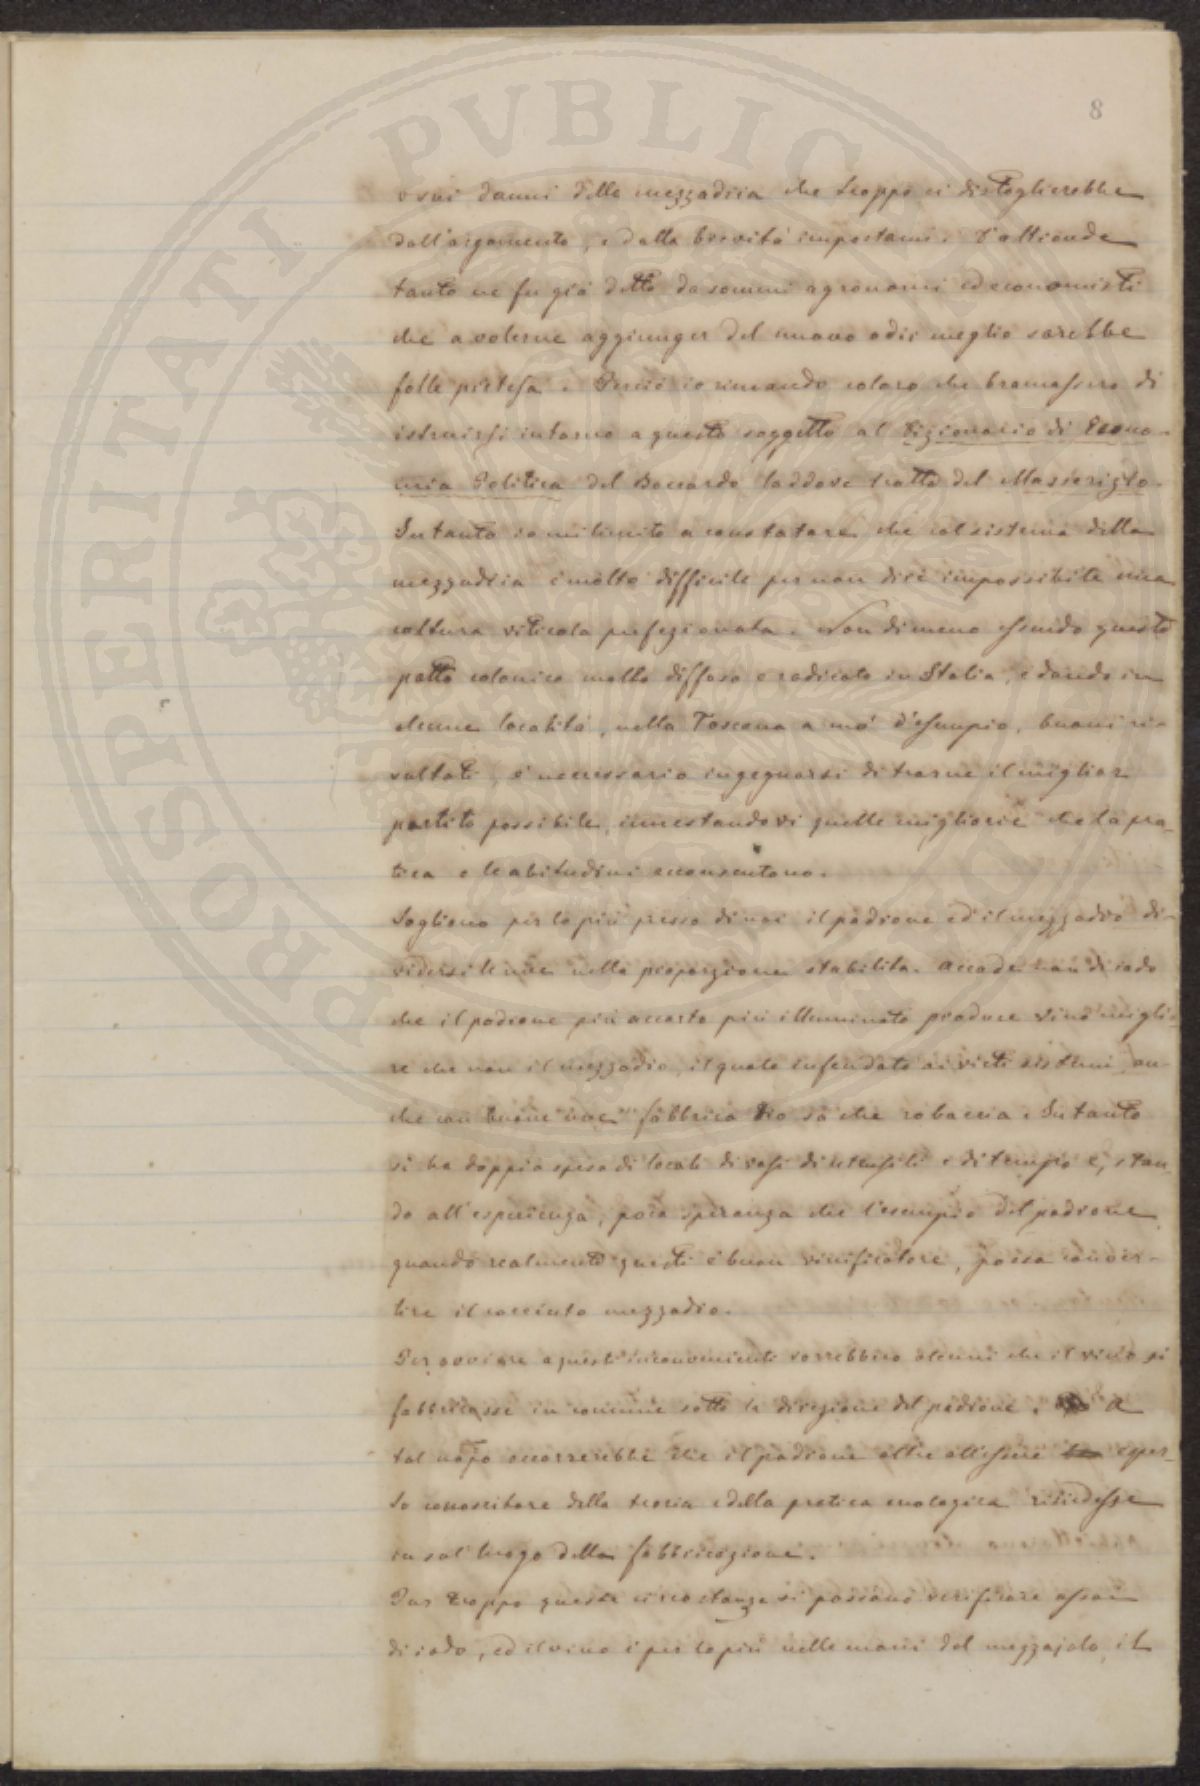 8
o sui danni della mezzadria che troppo ci distoglierebbe
dall'argomento, e dalla brevità impostami. D'altronde
tanto ne fu già detto da sommi agronomi ed economisti
che a volerne aggiunger del nuovo o dir meglio sarebbe
folle pretesa. Perciò io rimando coloro che bramassero di
istruirsi intorno a questo soggetto al Dizionario di Econo-
mia Politica del Boccardo laddove tratta del Masserizio.
Intanto io mi limito a constatare che col sistema della
mezzadria è molto difficile per non dire impossibile una
coltura viticola perfezionata. Non di meno essendo questo
patto colonico molto diffuso e radicato in Italia, e dando in
alcune località, nella Toscana a mo' d'esempio, buoni ri-
sultati, è necessario ingegnarsi di trarne il miglior
partito possibile, innestandovi quelle migliorie che la pra-
tica e le abitudini acconsentono.
Sogliono per lo più presso di noi il padrone ed il mezzadro di-
vidersi le uve nella proporzione stabilita. Accade non di rado
che il padrone più accorto più illuminato produce vino miglio
re che non il mezzadro, il quale infeudato ai vieti sistemi, an-
che con buone uve fabbrica Dio sa che robaccia. Intanto
si ha doppia spesa di locali di vasi di utensili e di tempo e, stan-
do all'esperienza, poca speranza che l'esempio del padrone,
quando realmente questi è buon vinificatore, possa conver-
tire il cocciuto mezzadro.
Per ovviare a questi inconvenienti vorrebbero alcuni che il vino si
fabbricasse in comune sotto la direzione del padrone. A
tal uopo occorrerebbe che il padrone oltre all'essere esper-
to conoscitore della teoria e della pratica enologica risiedesse
in sul luogo della fabbricazione.
Pur troppo queste circostanze si possono verificare assai
di rado, ed il vino è per lo più nelle mani del mezzajolo, il
PROSPERITATI PVBLICAE